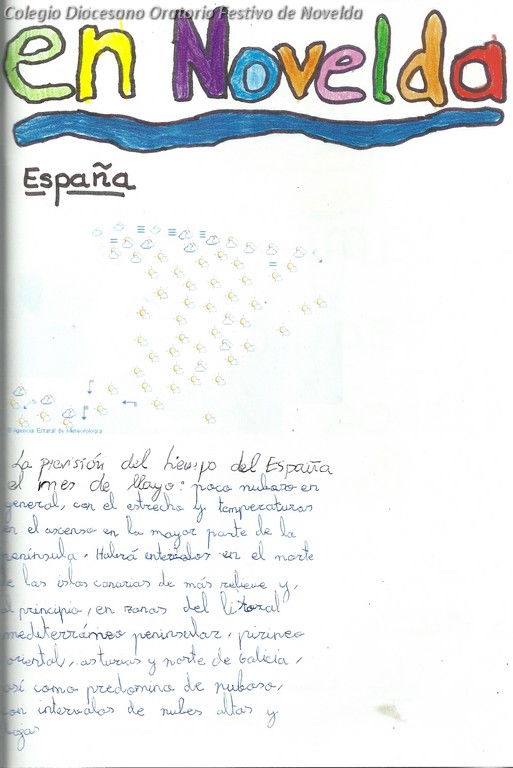 Colegio Diocesano Oratorio Festivo de Novelda
en Novelda
España
© Agencia Estatal de Meteorología
La previsión del tiempo del España
el mes de Mayo: poco nuboso en
general, con el estrecho y temperaturas
en el ascenso en la mayor parte de la
península. Habrá intervalos en el norte
de las islas canarias de más relieve y,
al principio, en zonas del litoral
mediterráneo peninsular, pirineo
oriental, asturias y norte de Galicia,
así como predomino de nuboso,
con intervalos de nubes altas y
bajas